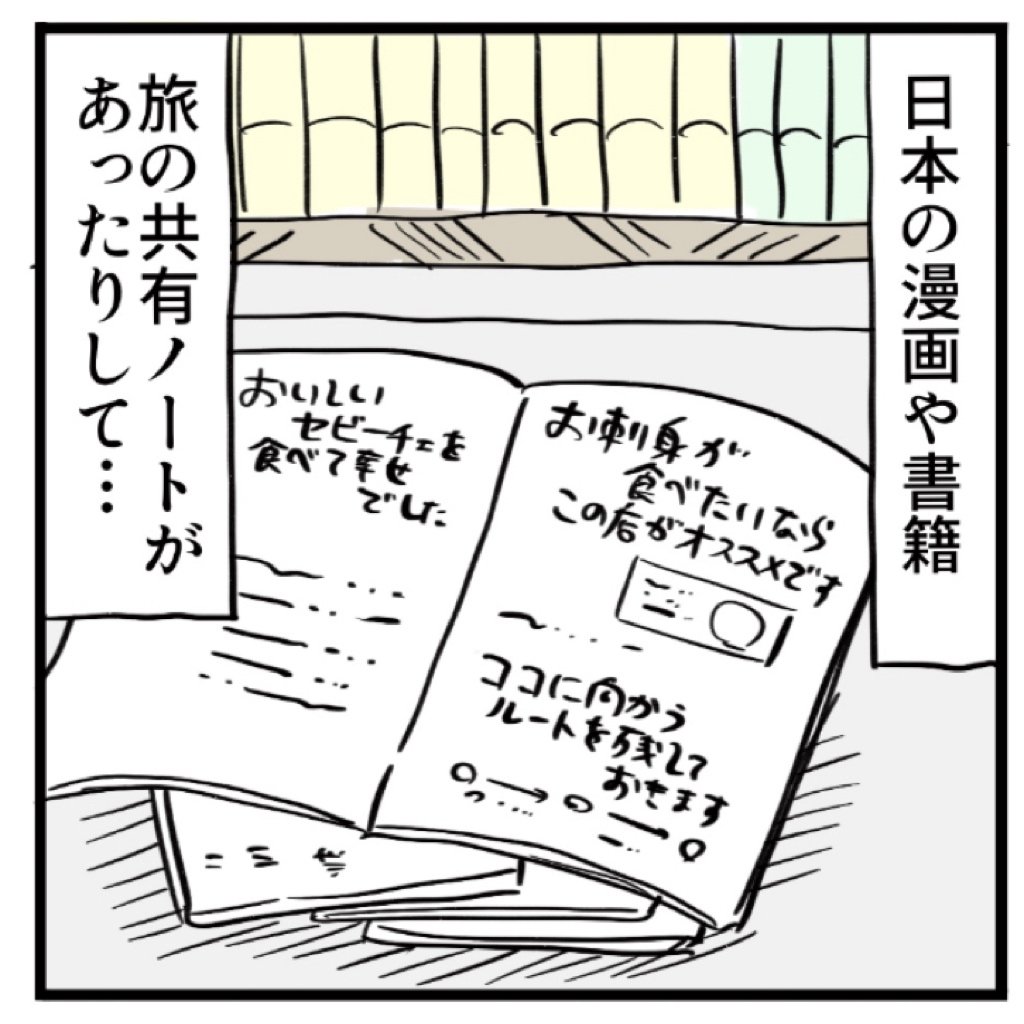 日本の漫画や書籍
旅の共有ノートが
あったりして…
おいしい
セビーチェを
食べて幸せ
でした
お刺身が
食べたいなら
この店がオススメです
ココに向かう
ルートを残して
おきます